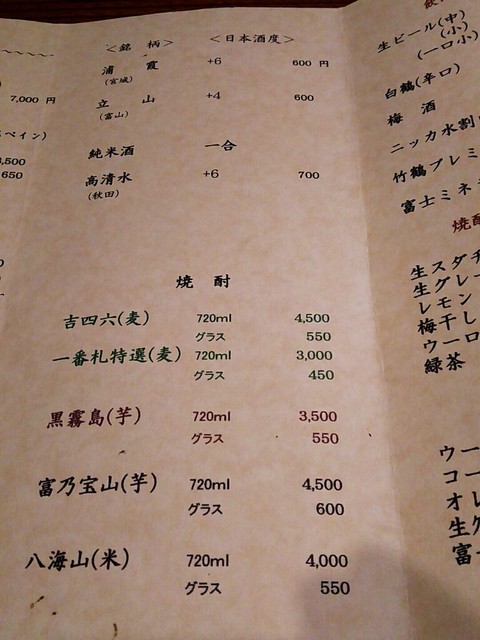 7,000 円
ペイン)
3,500
650
<銘 柄> <日本酒度>
浦 霞 +6 600 円
(宮城)
立 山 +4 600
(富山)
純米酒 一合
高清水 +6 700
(秋田)
焼 酎
吉四六(麦) 720ml 4,500
グラス 550
一番札特選(麦) 720ml 3,000
グラス 450
黒霧島(芋) 720ml 3,500
グラス 550
富乃宝山(芋) 720ml 4,500
グラス 600
八海山(米) 720ml 4,000
グラス 550
生ビール(中)
(小)
(一口小)
白鶴(辛口)
梅 酒
ニッカ水割
竹鶴プレミ
富士ミネ
焼酎
生スダチ
生グレー
レモン
梅干し
ウーロ
緑茶
ウー
コー
オレ
生グ
富士